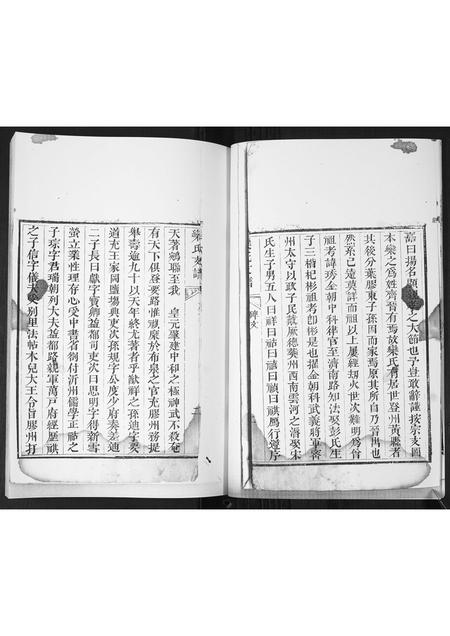 語曰揚名顯親孝之大節也予豈敢辭謹按宗支圖
本欒之為姓齊晉有焉故欒氏有居世登州黃縣者
其後分葉膠東子孫因而家焉原其所自乃晉出也
然系已遠莫詳而祖以上屢經刼火世次難明為曾
祖考諱琇金朝中科律官至濟南路知法娶彭氏生
子三楢杞彬祖考即彬是也擢金朝科武義將軍密
州太守以政子民歲厥德葬州西南雲河之滸娶宋
氏生子男五人曰祥曰祜曰禧曰禎曰祺焉行發序
天著鴒聯至我 皇元肇建中和之極神武不殺奄
有天下俱登要路惟禎縻於布泉之官充膠州務提
舉壽逾九十以天年終尤著者乎猷祥之孫迪字奕
道充王家岡鹽場典吏次孫規字公度少府奏差迪
二子長曰獻字寶卿益都司吏次曰思明字得新雪
螢立業性理存心受中書省劄付沂州儒學正祜之
子琮字君瑞朝列大夫益都路親軍萬戸府經歷祺
之子信字僅夫奐別里法帖木兒大王令旨膠州打